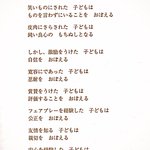 笑いものにされた 子どもは
ものを言わずにいることを おぼえる
皮肉にさらされた 子どもは
鈍い良心の もちぬしとなる
しかし、激励をうけた 子どもは
自信を おぼえる
寛容にであった 子どもは
忍耐を おぼえる
賞賛をうけた 子どもは
評価することを おぼえる
フェアプレーを経験した 子どもは
公正を おぼえる
友情を知る 子どもは
親切を おぼえる
安心を経験した 子どもは